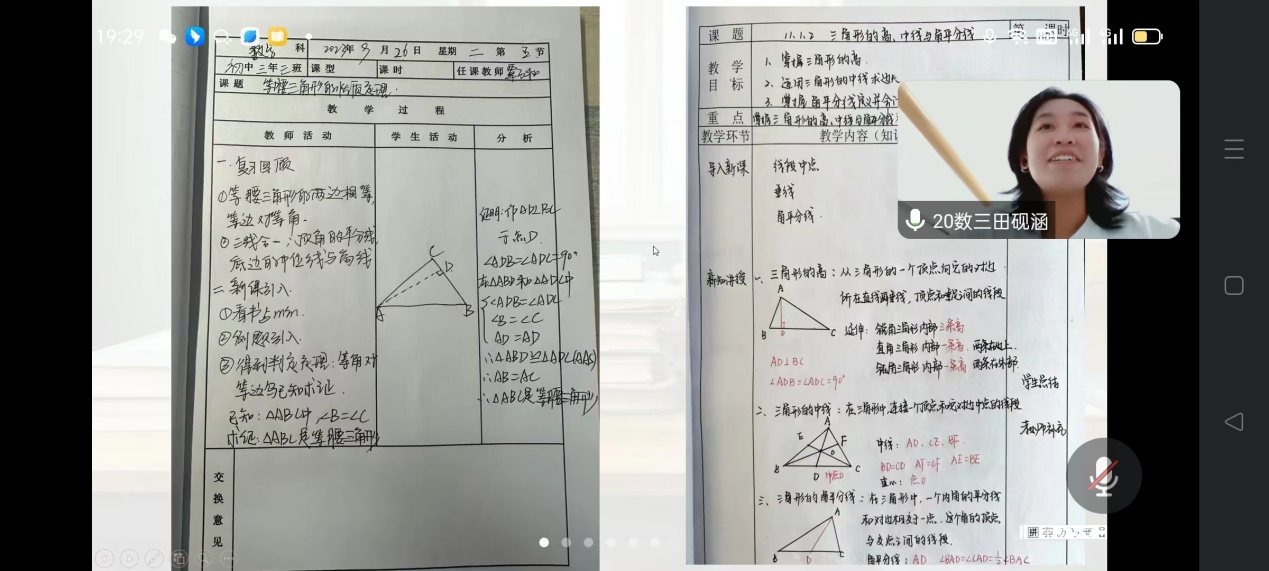 19:29
数学 科 2023年9月26日 星期 二 第 五 节
初中二年三班 课型 课时 任课教师
课题 等腰三角形的性质定理.
教 学 过 程
教师活动 学生活动 分析
一.复习回顾
①等腰三角形的两边相等,
等边对等角.
②三线合一:顶角的平分线,
底边的中位线与高线
二.新课引入.
①看书5min.
②例题引入.
③得到判定定理:等角对
等边写已知求证.
已知:△ABC中,∠B=∠C
求证:△ABC是等腰三角形
C
D
A
B
证明:作AD⊥BC
于点D.
∠ADB=∠ADC=90°
在△ABD和△ADC中
∠ADB=∠ADC
∠B=∠C
AD=AD
∴△ABD≌△ADC(AAS)
∴AB=AC
∴△ABC是等腰三角形
交换意见
课题 11.1.2 三角形的高、中线与角平分线 第 课时
教学目标
1. 掌握三角形的高.
2. 运用三角形的中线求边长
3. 掌握角平分线定义并会
重点 掌握三角形的高、中线与角平分线
教学环节 教学内容(知识
导入新课 线段中点
垂线
角平分线.
20数三田砚涵
新知讲授 一、三角形的高:从三角形的一个顶点向它的对边
所在直线画垂线,顶点和垂足间的线段
A
B
D
C
延伸:锐角三角形内部三条高
直角三角形内部一条高.两条在边上.
钝角三角形内部一条高 两条在外部.
AD⊥BC
∠ADB=∠ADC=90°
学生总结
老师补充
二、三角形的中线:在三角形中,连接一个顶点和它对边中点的线段
A
E
F
O
B
D
C
中点D
中线:AD、CE、BF.
BD=CD AF=CF AE=BE
重心:点O
三、三角形的角平分线:在三角形中,一个内角的平分线
和对边相交于一点,这个角的顶点
与交点之间的线段.
A
B
D
C
角平分线:AD ∠BAD=∠CAD=½∠BAC